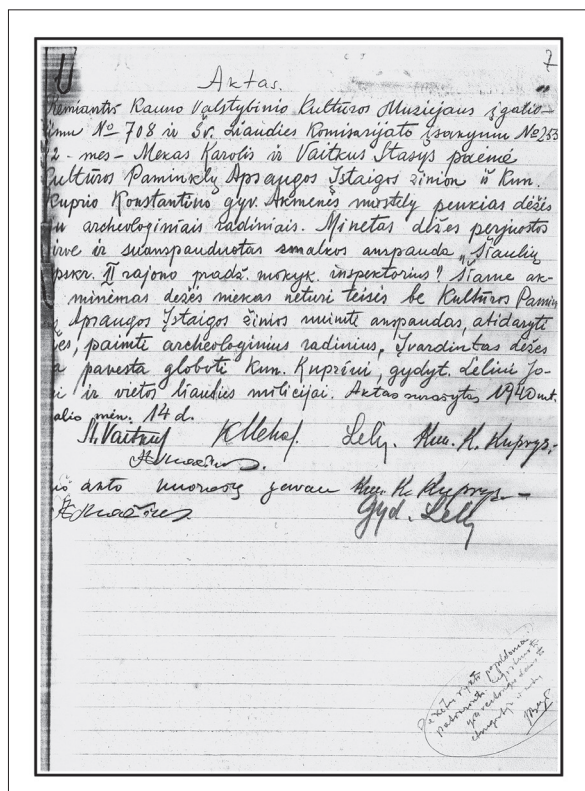 7
Aktas.
Remiantis Kauno Valstybinio Kultūros Muziejaus įgalio-
jimu № 708 ir Šv. Liaudies Komisarijato įsakymu № 253
2 - mes - Mekas Karolis ir Vaitkus Stasys paėmė
Kultūros Paminklų Apsaugos Įstaigos žinion iš Kun.
Kuprio Konstantino gyv. Akmenės mostely penkias dėžes
su archeologiniais radiniais. Minetas dėžes perjuostos
virve ir suanspauduotas smalkos anspauda „Šiaulių
apskr. II rajono pradž. mokyk. inspektorius". Šiame ak-
minėmas dežės niekas neturi teisės be Kultūros Pamin
Apsaugos Įstaigos žinios nuimti anspaudas, atidaryti
es, paimti archeologinius radinius, Įvardintas dėžes
pavesta globoti Kun. Kupriui, gydyt. Leliui Jo-
ui ir vietos liaudies milicijai. Aktas surašytas 1940 mt.
mėn. 14 d.
St. Vaitkus KMekas. Lelis. Kun. K. Kuprys.
akto nuorašą gavau Kun. K. Kuprys.
Gyd. Lelis